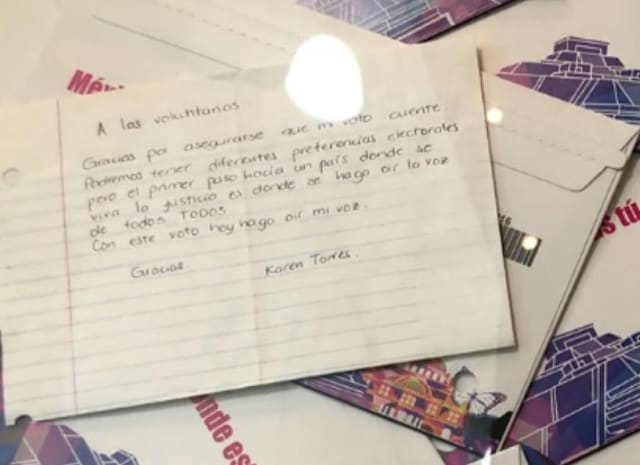 Méx
A los voluntarios
Gracias por asegurarse que mi voto cuente
Podremos tener diferentes preferencias electorales
pero el primer paso hacia un país donde se
viva la justicia es donde se haga oir la voz
de todos TODOS
Con este voto hoy hago oir mi voz.
Gracias. Karen Torres.
s tú
nde es